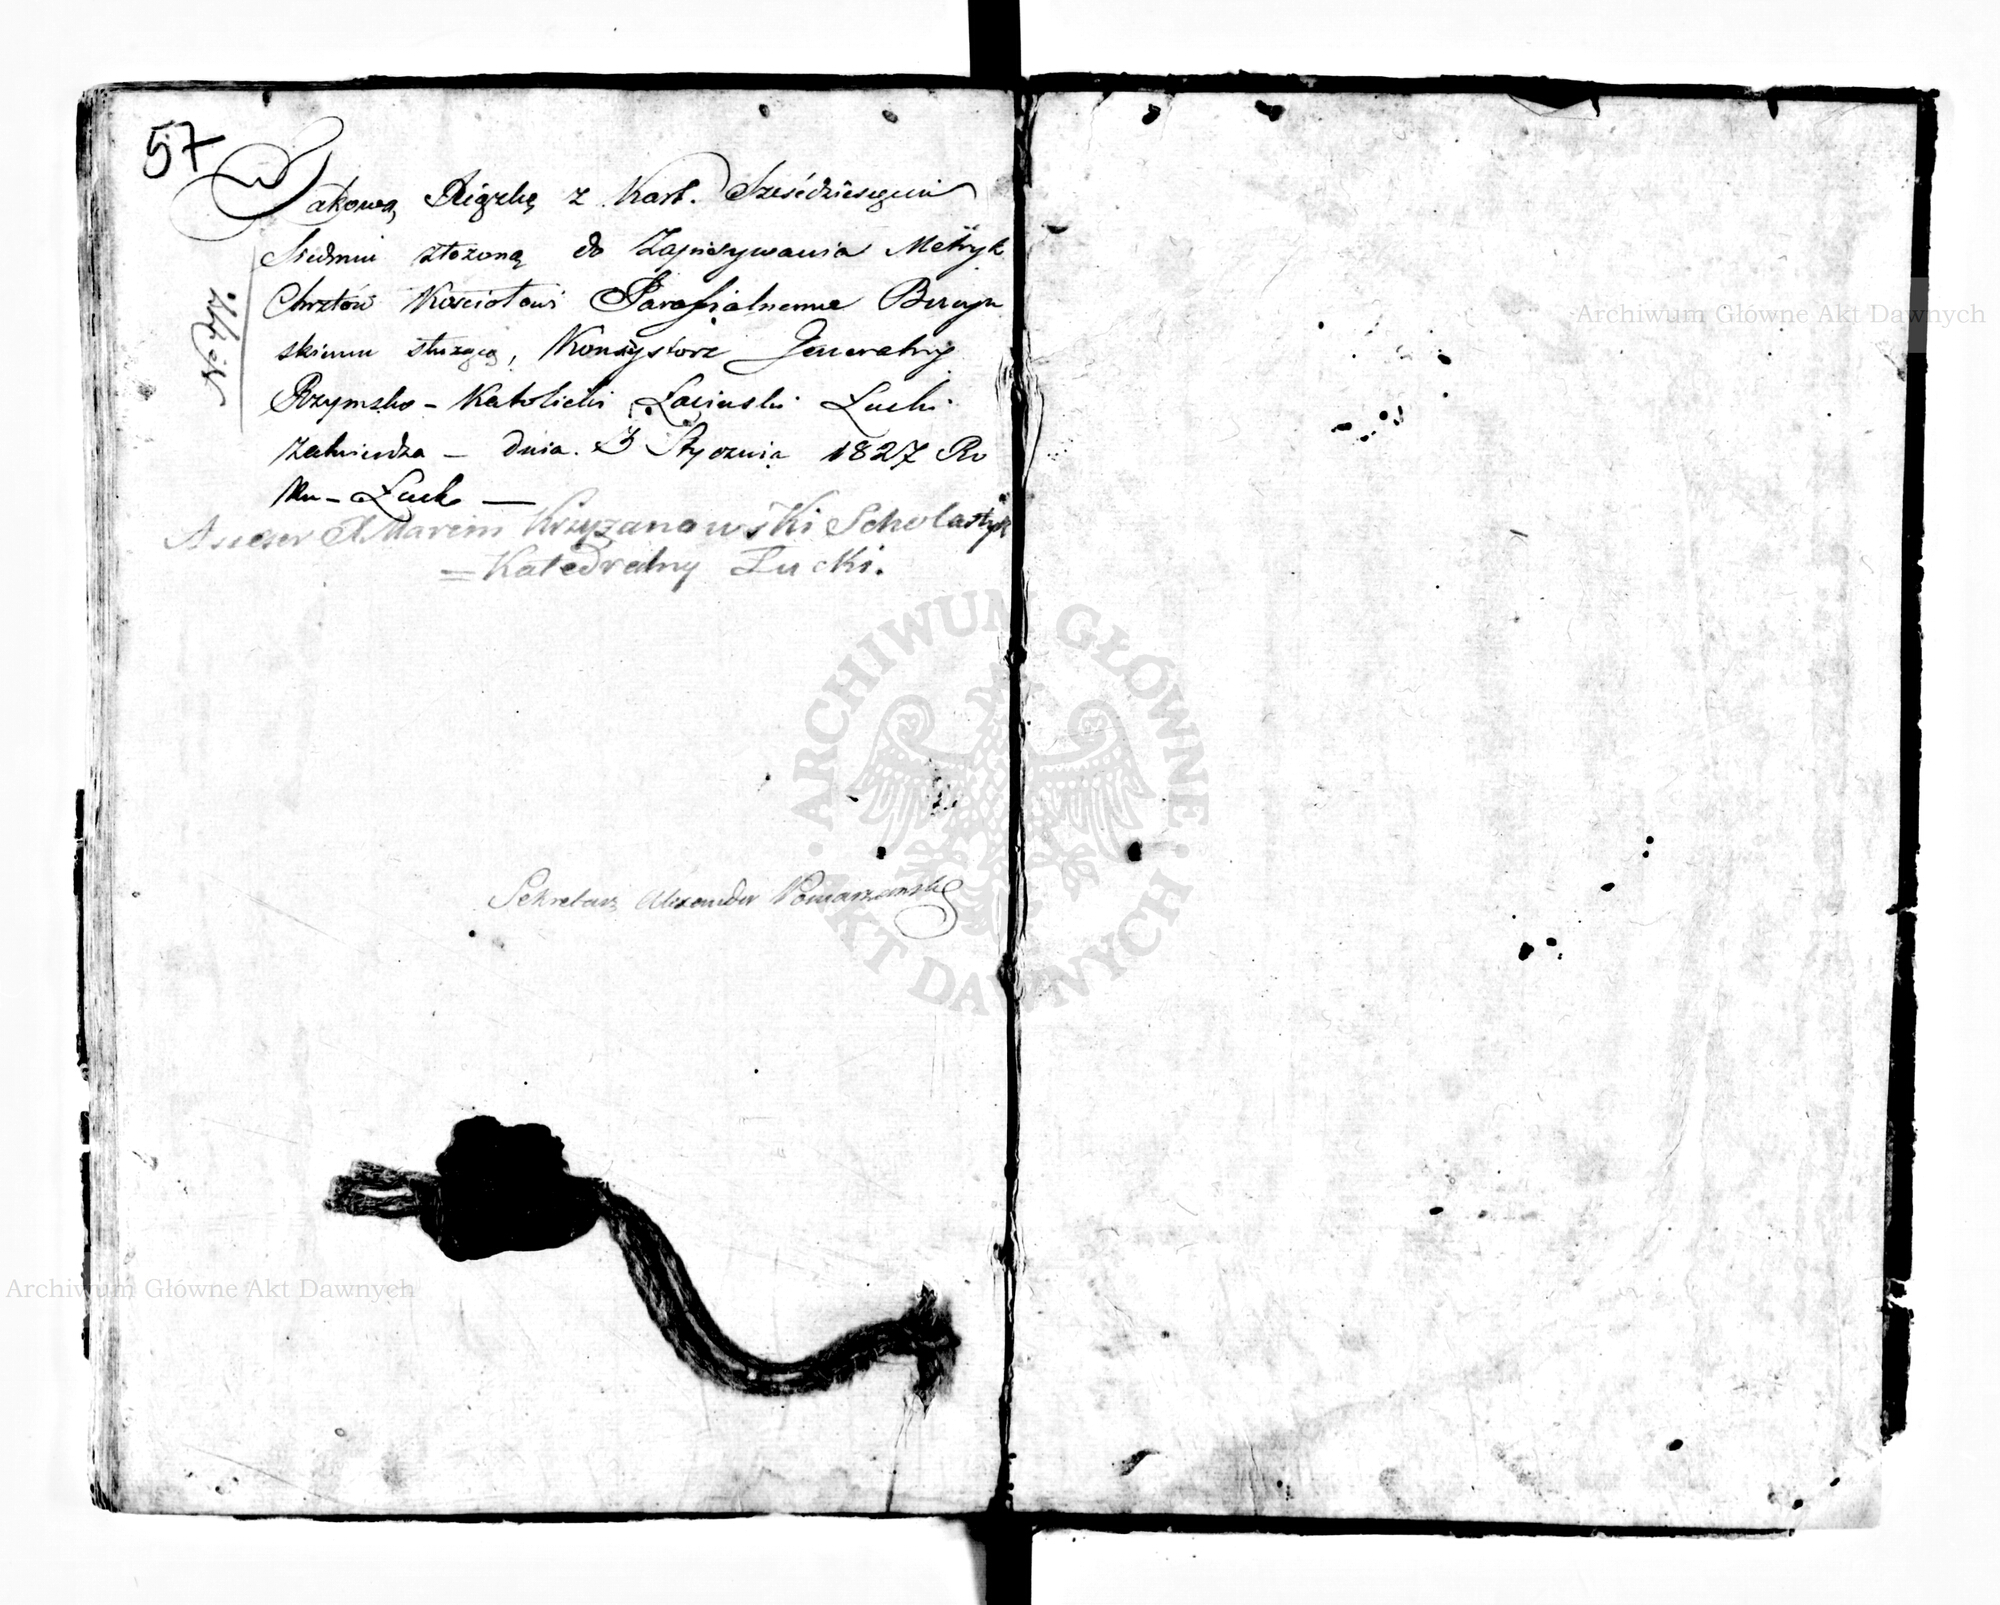 57
Takową Xiązkę z Kart. Sześćdziesięciu
Siedmiu złożoną do Zapisywania Metryk
Chrztów Kosciołowi Parafialnemu
skiemu służącą, Konsystorz Jeneralny
Rzymsko - Katolicki Łaciński Łucki
zatwierdza - dnia. 3 Stycznia 1827 Ro
ku - Łuck —
No 477.
Assesor Marcin Krzyzanowski Scholastyk
= Katedralny Łucki.
Sekretarz Alexander
Archiwum Główne Akt Dawnych
Archiwum Główne Akt Dawnych
ARCHIWUM GŁÓWNE
AKT DAWNYCH